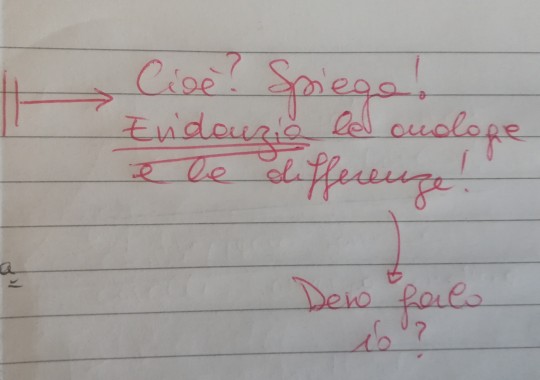 Cioè? Spiega!
Evidenzia le analogie
e le differenze!
a
Devo farlo
io?